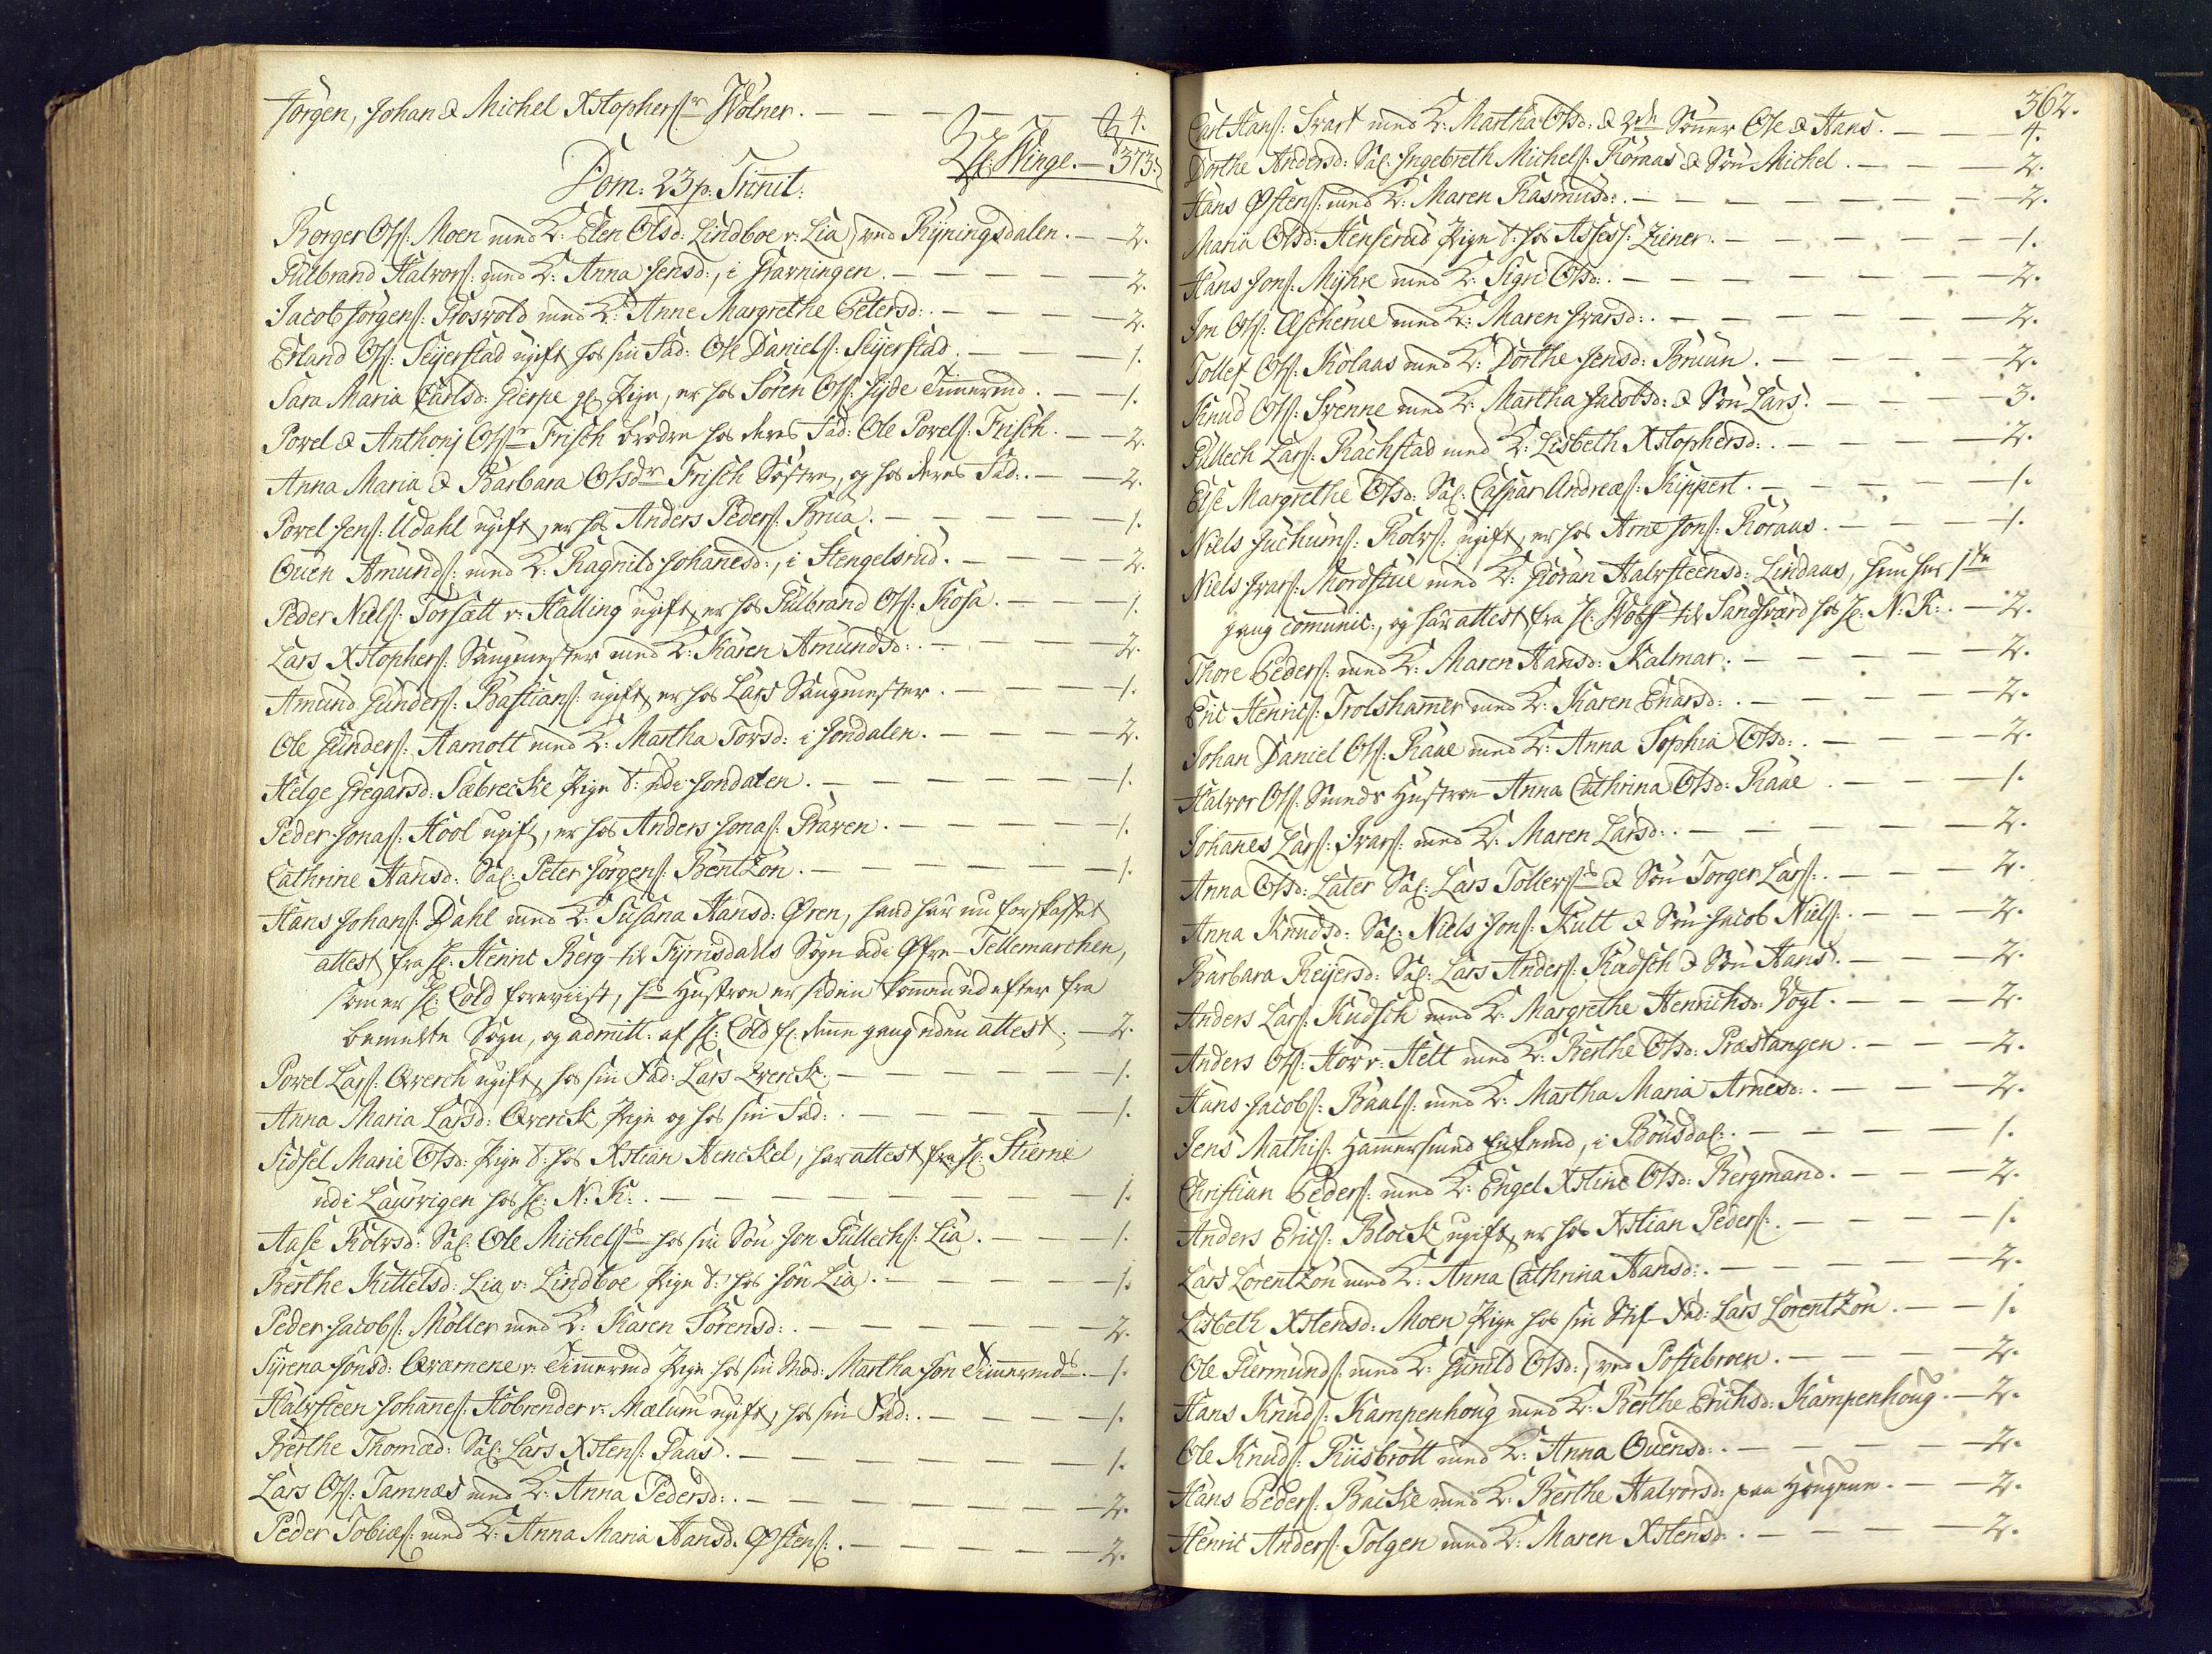 Jørgen, Johan & Michel Xstophersr Wølner. — 4.
H: Winge. — 373.
Dom: 23 p: Trinit:
Borger Ols: Moen med K: Elen Olsd: Lindboe v: Lia, ved Ryningsdalen. — 2.
Gulbrand Halvors: med K: Anna Jensd:, i Gravningen. — 2.
Jacob Jørgens: Grosvold med K: Anne Margrethe Petersd:. — 2.
Erland Ols: Seyerstad ugift hos sin Fad: Ole Daniels: Seyerstad. — 1.
Sara Maria Carlsd: Gierpe gl: Pige, er hos Søren Ols: Hyde Timmermd. — 1.
Povel & Anthonj Olsr Frisch brødre hos deres Fad: Ole Povels: Frisch. — 2.
Anna Maria & Barbara Olsdr Frisch Søstre, og hos deres Fad:. — 2.
Povel Jens: Udahl ugift, er hos Anders Peders: Brua. — 1.
Ouen Amunds: med K: Ragnild Johanesd:, i Stengelsrud. — 2.
Peder Niels: Torsatt v: Halling ugift, er hos Gulbrand Ols: Kosa. — 1.
Lars Xstophers: Saugmester med K: Karen Amundsd:. — 2.
Amund Gunders: Bastians: ugift, er hos Lars Saugmester. — 1.
Ole Gunders: Aamott med K: Martha Torsd: i Jondalen. — 2.
Helge Gregarsd: Sæbrecke Pige t: udi Jondalen. — 1.
Peder Jonas: Hool ugift, er hos Anders Jonas: Graven. — 1.
Cathrine Hansd: Sal: Peter Jørgens: Bentzon. — 1.
Hans Johans: Dahl med K: Susana Hansd: Øren, hand har nu forskaffet
attest fra H: Henric Berg til Fyrrisdahls Sogn udi Øfre-Tellemarchen,
som er H: Cold foreviist, hs Hustroe er siden kommen ud efter fra
bemelte Sogn, og admitt. af H: Cold f: denne gang uden attest. — 2.
Povel Lars: Qverch ugift, hos sin Fad: Lars Qverck. — 1.
Anna Maria Larsd: Qverck Pige og hos sin Fad:. — 1.
Sidsel Marie Olsd: Pige t: hos Xstian Henckel, har attest fra H: Stierne
udi Laurvigen hos H: N: K:. — 1.
Aase Rolvsd: Sal: Ole Michelss hos sin Søn Jon Gullechs: Lia. — 1.
Berthe Kittelsd: Lia v: Lindboe Pige t: hos Jon Lia. — 1.
Peder Jacobs: Møller med K: Karen Sørensd:. — 2.
Syrena Jonsd: Qvarnene v: Timmermd Pige hos sin Mod: Martha Jon Timmermds. — 1.
Halvsteen Johanes: Hobrender v: Mælum ugift, hos sin Fad:. — 1.
Berthe Thomæd: Sal: Lars Xstens: Faas. — 1.
Lars Ols: Tamnæs med K: Anna Pedersd:. — 2.
Peder Tobias: med K: Anna Maria Hansd: Østens:. — 2.
362.
Carl Hans: Svart med K: Martha Olsd: & 2de Sønner Ole & Hans. — 4.
Dorthe Andersd: Sal: Ingebreth Michels: Røraas & Søn Michel. — 2.
Hans Østens: med K: Maren Rasmusd:. — 2.
Maria Olsd: Henserud Pige t: hos Assess: Ziener. — 1.
Hans Jons: Myhre med K: Sigri Olsd:. — 2.
Jon Ols: Æscherue med K: Maren Ivarsd:. — 2.
Tollef Ols: Kolaas med K: Dorthe Jensd: Bruun. — 2.
Knud Ols: Svenne med K: Martha Jacobsd: & Søn Lars. — 3.
Gullech Lars: Rachstad med K: Lisbeth Xstophersd:. — 2.
Else Margrethe Olsd: Sal: Caspar Andreæs: Kippert. — 1.
Niels Juchums: Rolvs: ugift, er hos Arne Jons: Røraas. — 1.
Niels Ivars: Mordstue med K: Giøran Halvsteensd: Lindaas, hun her 1te
gang comunic:, og har attest fra H: Wolff til Sandsværd hos H: N: K:. — 2.
Thore Peders: med K: Maren Hansd: Kalmar. — 2.
Eric Henrics: Trolshamer med K: Karen Enarsd:. — 2.
Johan Daniel Ols: Raae med K: Anna Sophia Olsd:. — 2.
Halvor Ols: Smeds Hustroe Anna Cathrina Olsd: Raae. — 1.
Johanes Lars: Ivars: med K: Maren Larsd:. — 2.
Anna Olsd: Later Sal: Lars Tollevss & Søn Torger Lars:. — 2.
Anna Knudsd: Sal: Niels Jons: Kult & Søn Jacob Niels:. — 2.
Barbara Reyersd: Sal: Lars Anders: Kudsch & Søn Hans. — 2.
Anders Lars: Kudsch med K: Margrethe Henrichsd: Vogt. — 2.
Anders Ols: Hov v: Helt med K: Berthe Olsd: Præstangen. — 2.
Hans Jacobs: Baals: med K: Martha Maria Arnesd:. — 2.
Jens Mathis: Hammersmed Enkemd, i Bousdal:. — 1.
Christian Peders: med K: Engel Xstine Olsd: Bergmand. — 2.
Anders Erics: Block ugift, er hos Xstian Peders:. — 1.
Lars Lorentzon med K: Anna Cathrina Hansd:. — 2.
Lisbeth Xstensd: Moen Pige hos sin Stif-Fad: Lars Lorentzon. — 1.
Ole Giermunds: med K: Gunild Olsd:, ved Postebroen. — 2.
Hans Knuds: Kampenhoug med K: Berthe Erichsd: Kampenhoug. — 2.
Ole Knuds: Riisbrott med K: Anna Ouensd:. — 2.
Hans Peders: Backe med K: Berthe Halvorsd: paa Hougene. — 2.
Henric Anders: Tolgen med K: Maren Xstensd:. — 2.